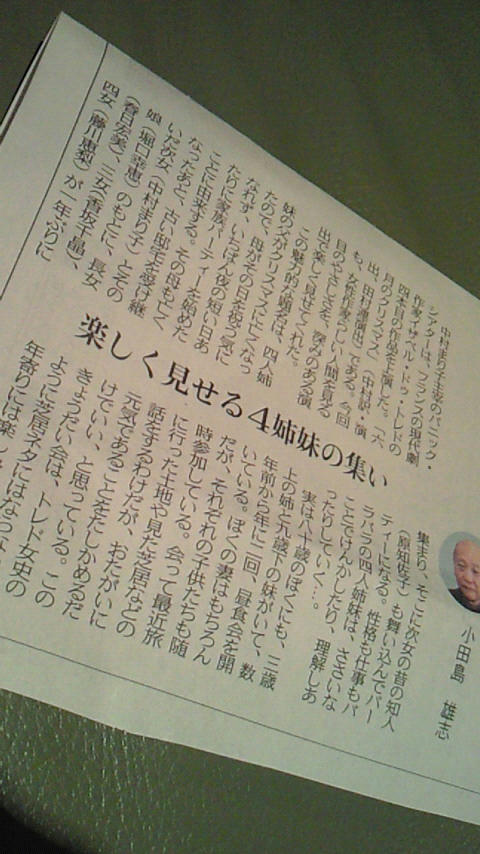 楽しく見せる4姉妹の集い
小田島 雄志
中村まり子主宰のパニック・
シアターは、フランスの現代劇
作家イザベル・ドゥ・トレドの
四本目の作品を上演した。「六
月のクリスマス」(中村訳・演
出、田村連演出)である。今回
も、女性作家らしい人間を見る
目のやさしさを、深みのある演
出で楽しく見せてくれた。
この魅力的な題名は、四人姉
妹の父がクリスマスに亡くなっ
たので、母がその日を祝う気に
なれず、いちばん夜の短い日あ
たりに家族パーティーを始めた
ことに由来する。その母も亡く
なったあと、古い邸宅を受け継
いだ次女(中村まり子)とその
娘(堀口幸恵)のもとに、長女
(春日宏美)、三女(香坂千晶)、
四女(藤川恵梨)が一年ぶりに
集まり、そこに次女の昔の知人
(原知佐子)も舞い込んでパー
ティーになる。性格も仕事もバ
ラバラの四人姉妹は、ささいな
ことでけんかしたり、理解しあ
ったりしていく…。
実は八十歳のぼくにも、三歳
上の姉と九歳下の妹がいて、数
年前から年に二回、昼食会を開
いている。ぼくの妻はもちろん
だが、それぞれの子供たちも随
時参加している。会って最近旅
に行った土地や見た芝居などの
話をするわけだが、おたがいに
元気であることをたしかめるだ
けでいい、と思っている。この
きょうだい会は、トレド女史の
ように芝居ネタにはなら
年寄りには楽し